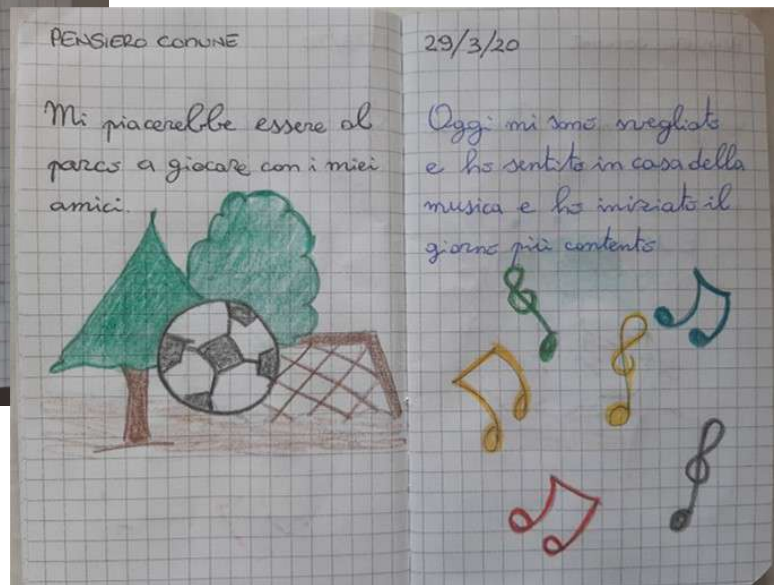 PENSIERO COMUNE
Mi piacerebbe essere al
parco a giocare con i miei
amici.
29/3/20
Oggi mi sono svegliato
e ho sentito in casa della
musica e ho iniziato il
giorno più contento